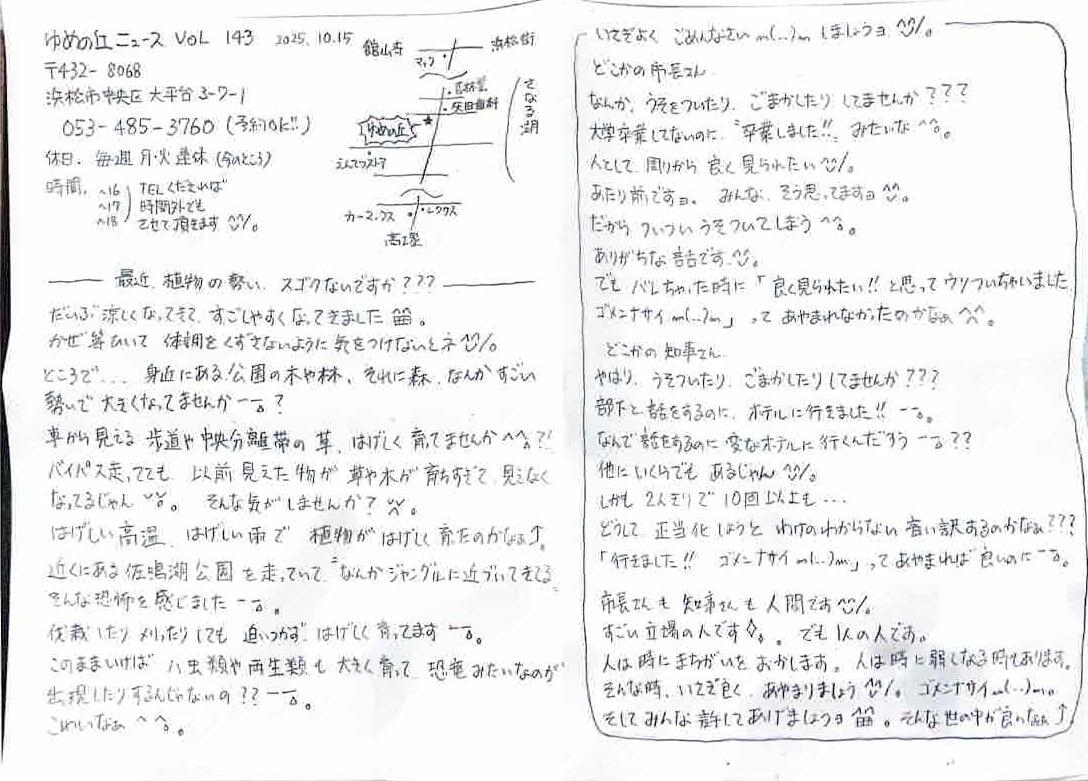 ゆめの丘ニュース VOL 143 2025.10.15
〒432-8068
浜松市中央区大平台3-7-1
053-485-3760 (予約OK!!)
休日、毎週 月・火 連休 (今のところ)
時間、~16 ~17 ~18
TELくだされば
時間外でも
させて頂きます
舘山寺
浜松街
マック
矢田歯科
さなる湖
ゆめの丘
カーマックス
レクサス
高塚
最近、植物の勢い、スゴクないですか???
だいぶ涼しくなってきて、すごしやすくなってきました。
かぜ等ひいて 体調をくずさないように気をつけないとネ
ところで... 身近にある公園の木や林、それに森、なんかすごい
勢いで大きくなってませんか?
車から見える 歩道や中央分離帯の草、はげしく育ってませんか?!
バイパス走ってても、以前見えた物が 草や木が育ちすぎて、見えなく
なってるじゃん。 そんな気がしませんか?
はげしい高温、はげしい雨で 植物がはげしく育ったのかなぁ↑。
近くにある佐鳴湖公園を走っていて、"なんかジャングルに近づいてきてる"
そんな恐怖を感じました。
伐栽したり 刈ったりしても 追いつかず、はげしく育ってます。
このままいけば ハ虫類や両生類も 大きく育って 恐竜みたいなのが
出現したりするんじゃないの??
こわいなぁ。
いさぎよく ごめんなさい m(..)m しましょうヨ。
どこかの市長さん
なんか、うそをついたり、ごまかしたりしてませんか???
大学卒業してないのに、"卒業しました!!" みたいな。
人として、周りから 良く見られたい。
あたり前ですョ。 みんな、そう思ってますョ。
だから ついつい うそついてしまう。
ありがちな話です。
でも、バレちゃった時に「良く見られたい!! と思って ウソついちゃいました
ゴメンナサイ m(..)m」って あやまれなかったのかなぁ。
どこかの知事さん
やはり、うそついたり、ごまかしたりしてませんか???
部下と話をするのに、ホテルに行きました!!
なんで話をするのに 変なホテルに行くんだろう??
他にいくらでも あるじゃん。
しかも 2人きりで 10回以上も...
どうして、正当化しようと わけのわからない 言い訳あるのかなぁ???
「行きました!! ゴメンナサイ m(..)m」って あやまれば 良いのに。
市長さんも 知事さんも 人間です。
すごい立場の人です。 でも 1人の人です。
人は時にまちがいを おかします。 人は時に弱くなる時もあります。
そんな時、いさぎ良く、あやまりましょう。ゴメンナサイ m(..)m。
そしてみんな許してあげましょうョ。そんな世の中が良いなぁ↑。